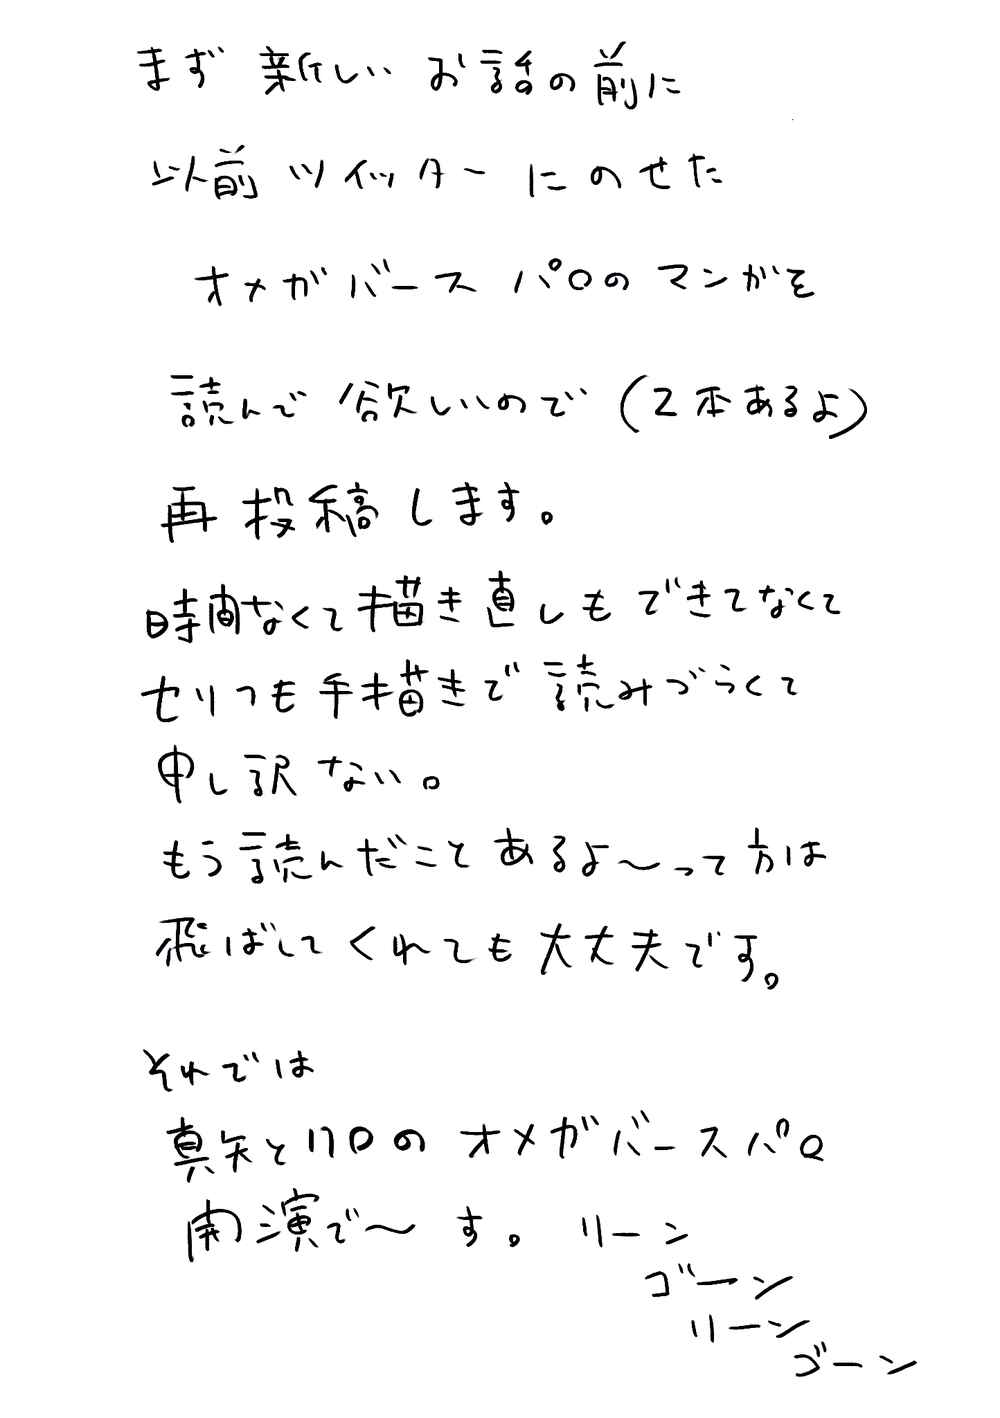 まず 新しい お話の前に
以前 ツイッターにのせた
オメガバース パロの マンガを
読んで 欲しいので (2本あるよ)
再投稿します。
時間なくて描き直しもできてなくて
セリフも手描きで読みづらくて
申し訳ない。
もう読んだことあるよ〜って方は
飛ばしてくれても大丈夫です。
それでは
真矢とクロの オメガバースパロ
開演で〜す。 リーン
ゴーン
リーン
ゴーン